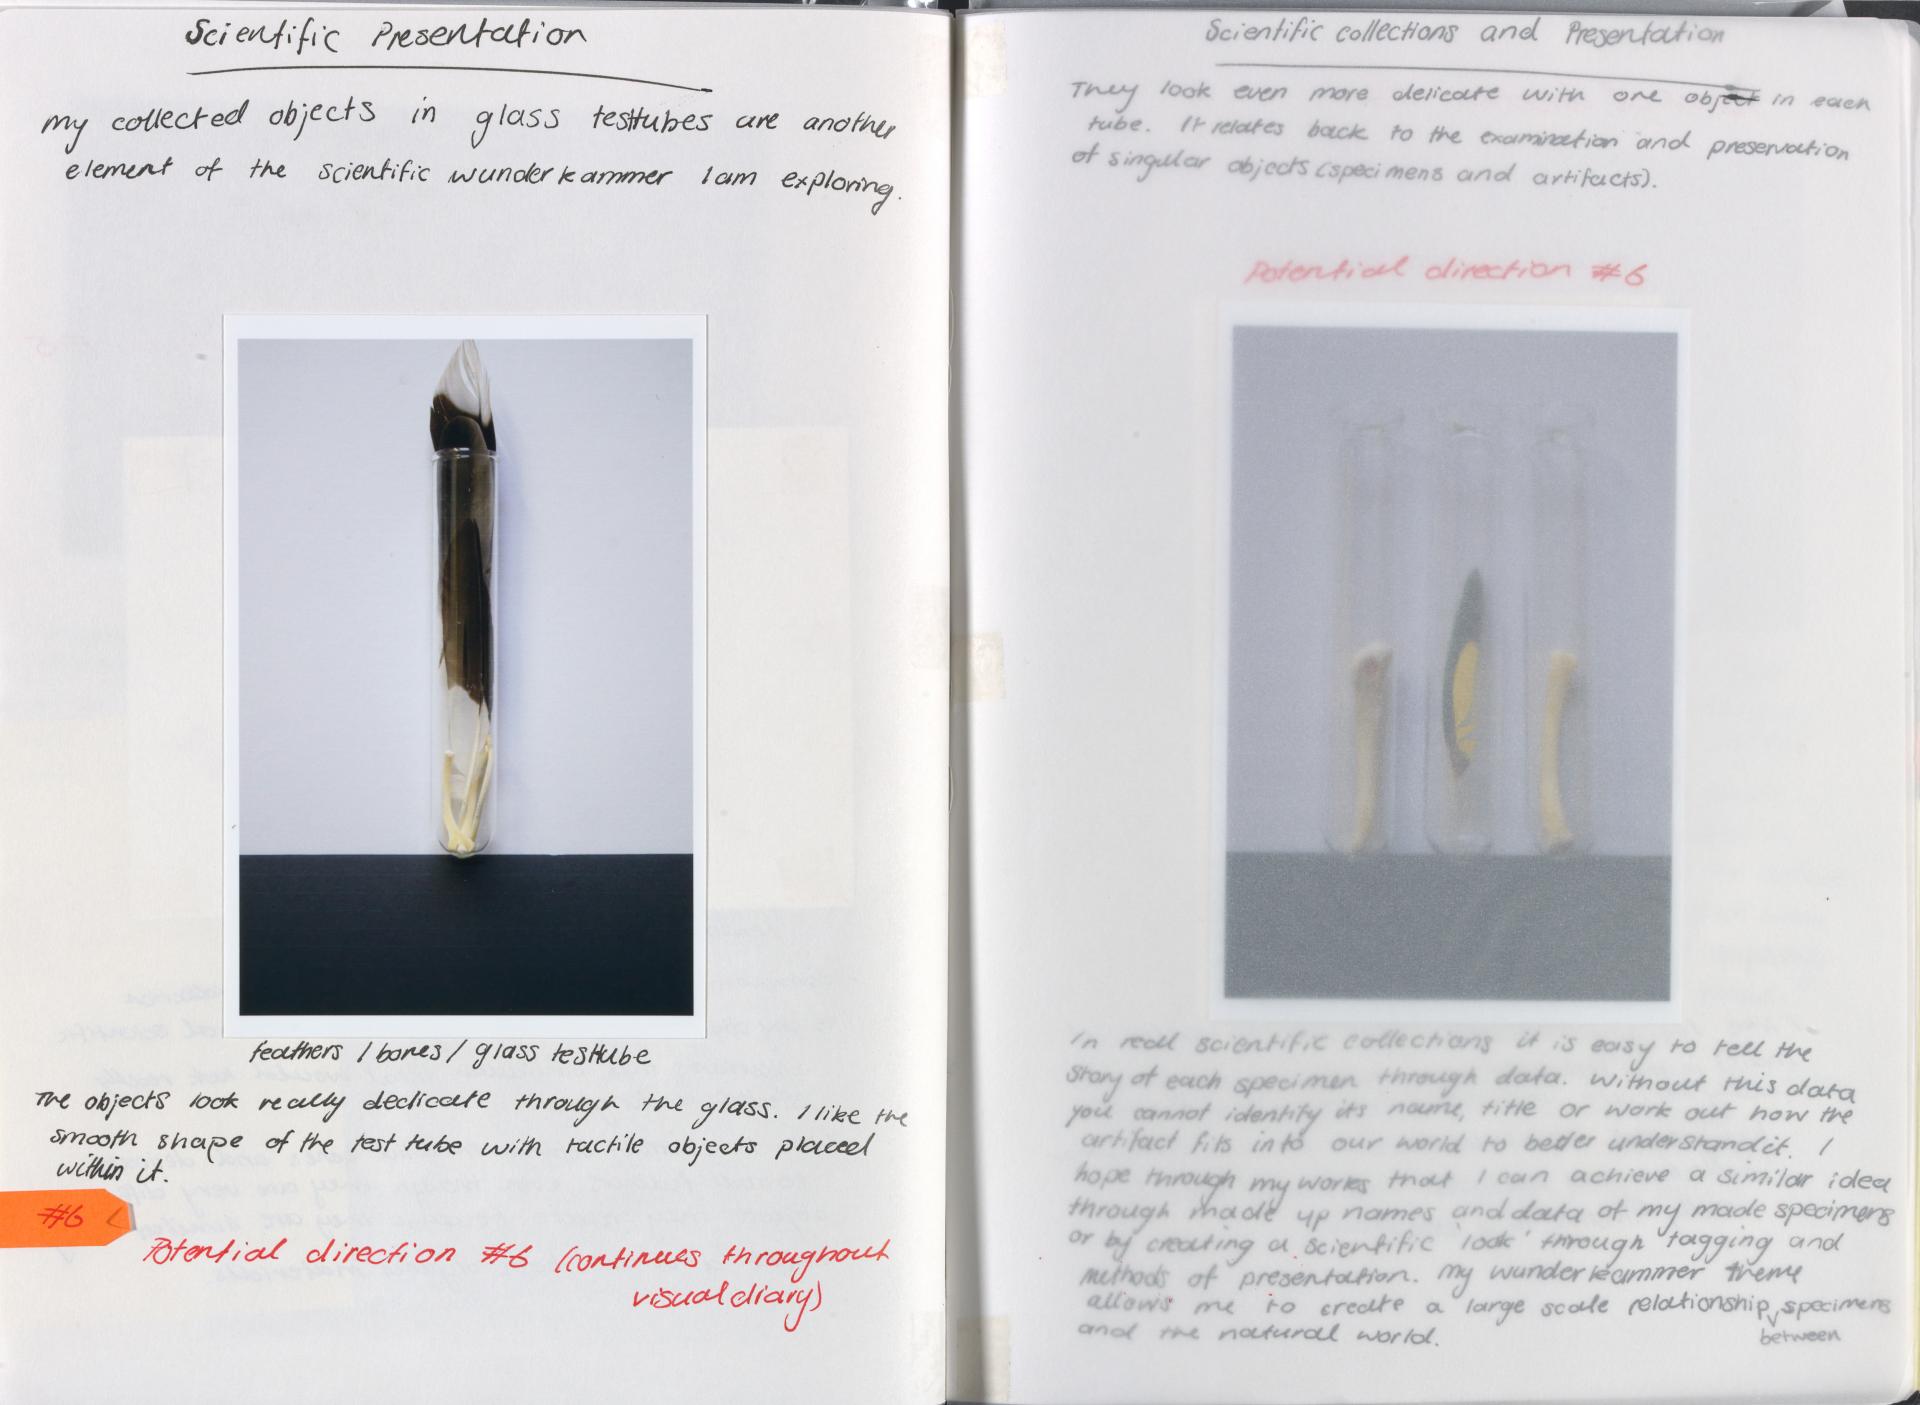 Scientific Presentation
my collected objects in glass testtubes are another
element of the scientific wunderkammer I am exploring.
feathers / bones / glass testtube
The objects look really dedicate through the glass. I like the
smooth shape of the test tube with tactile objects placed
within it.
#6
Potential direction #6 (continues throughout
visual diary)
Scientific collections and Presentation
They look even more delicate with one object in each
tube. It relates back to the examination and preservation
of singular objects (specimens and artifacts).
Potential direction #6
In real scientific collections it is easy to tell the
story of each specimen through data. Without this data
you cannot identify its name, title or work out how the
artifact fits into our world to better understand it. I
hope through my works that I can achieve a similar idea
through made up names and data of my made specimens
or by creating a scientific 'look' through tagging and
methods of presentation. My wunderkammer theme
allows me to create a large scale relationship specimens
between
and the natural world.